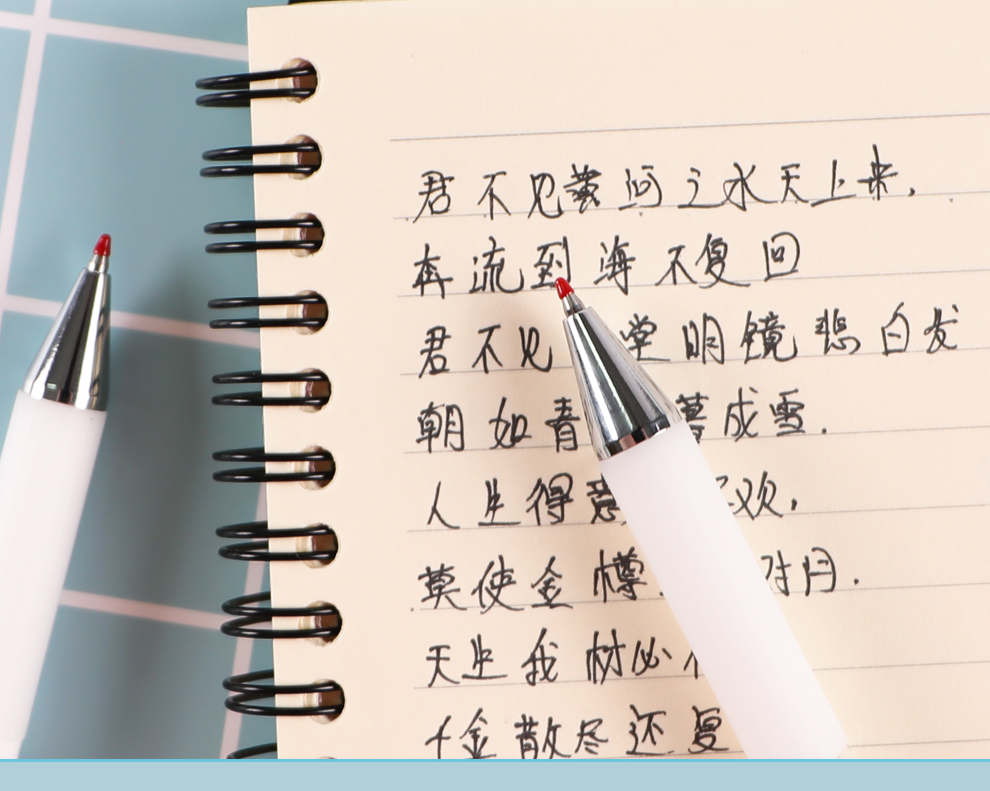 君不见黄河之水天上来,
奔流到海不复回
君不见 堂明镜悲白发
朝如青 暮成雪.
人生得意 欢,
莫使金樽 对月.
天生我材必
千金散尽还复